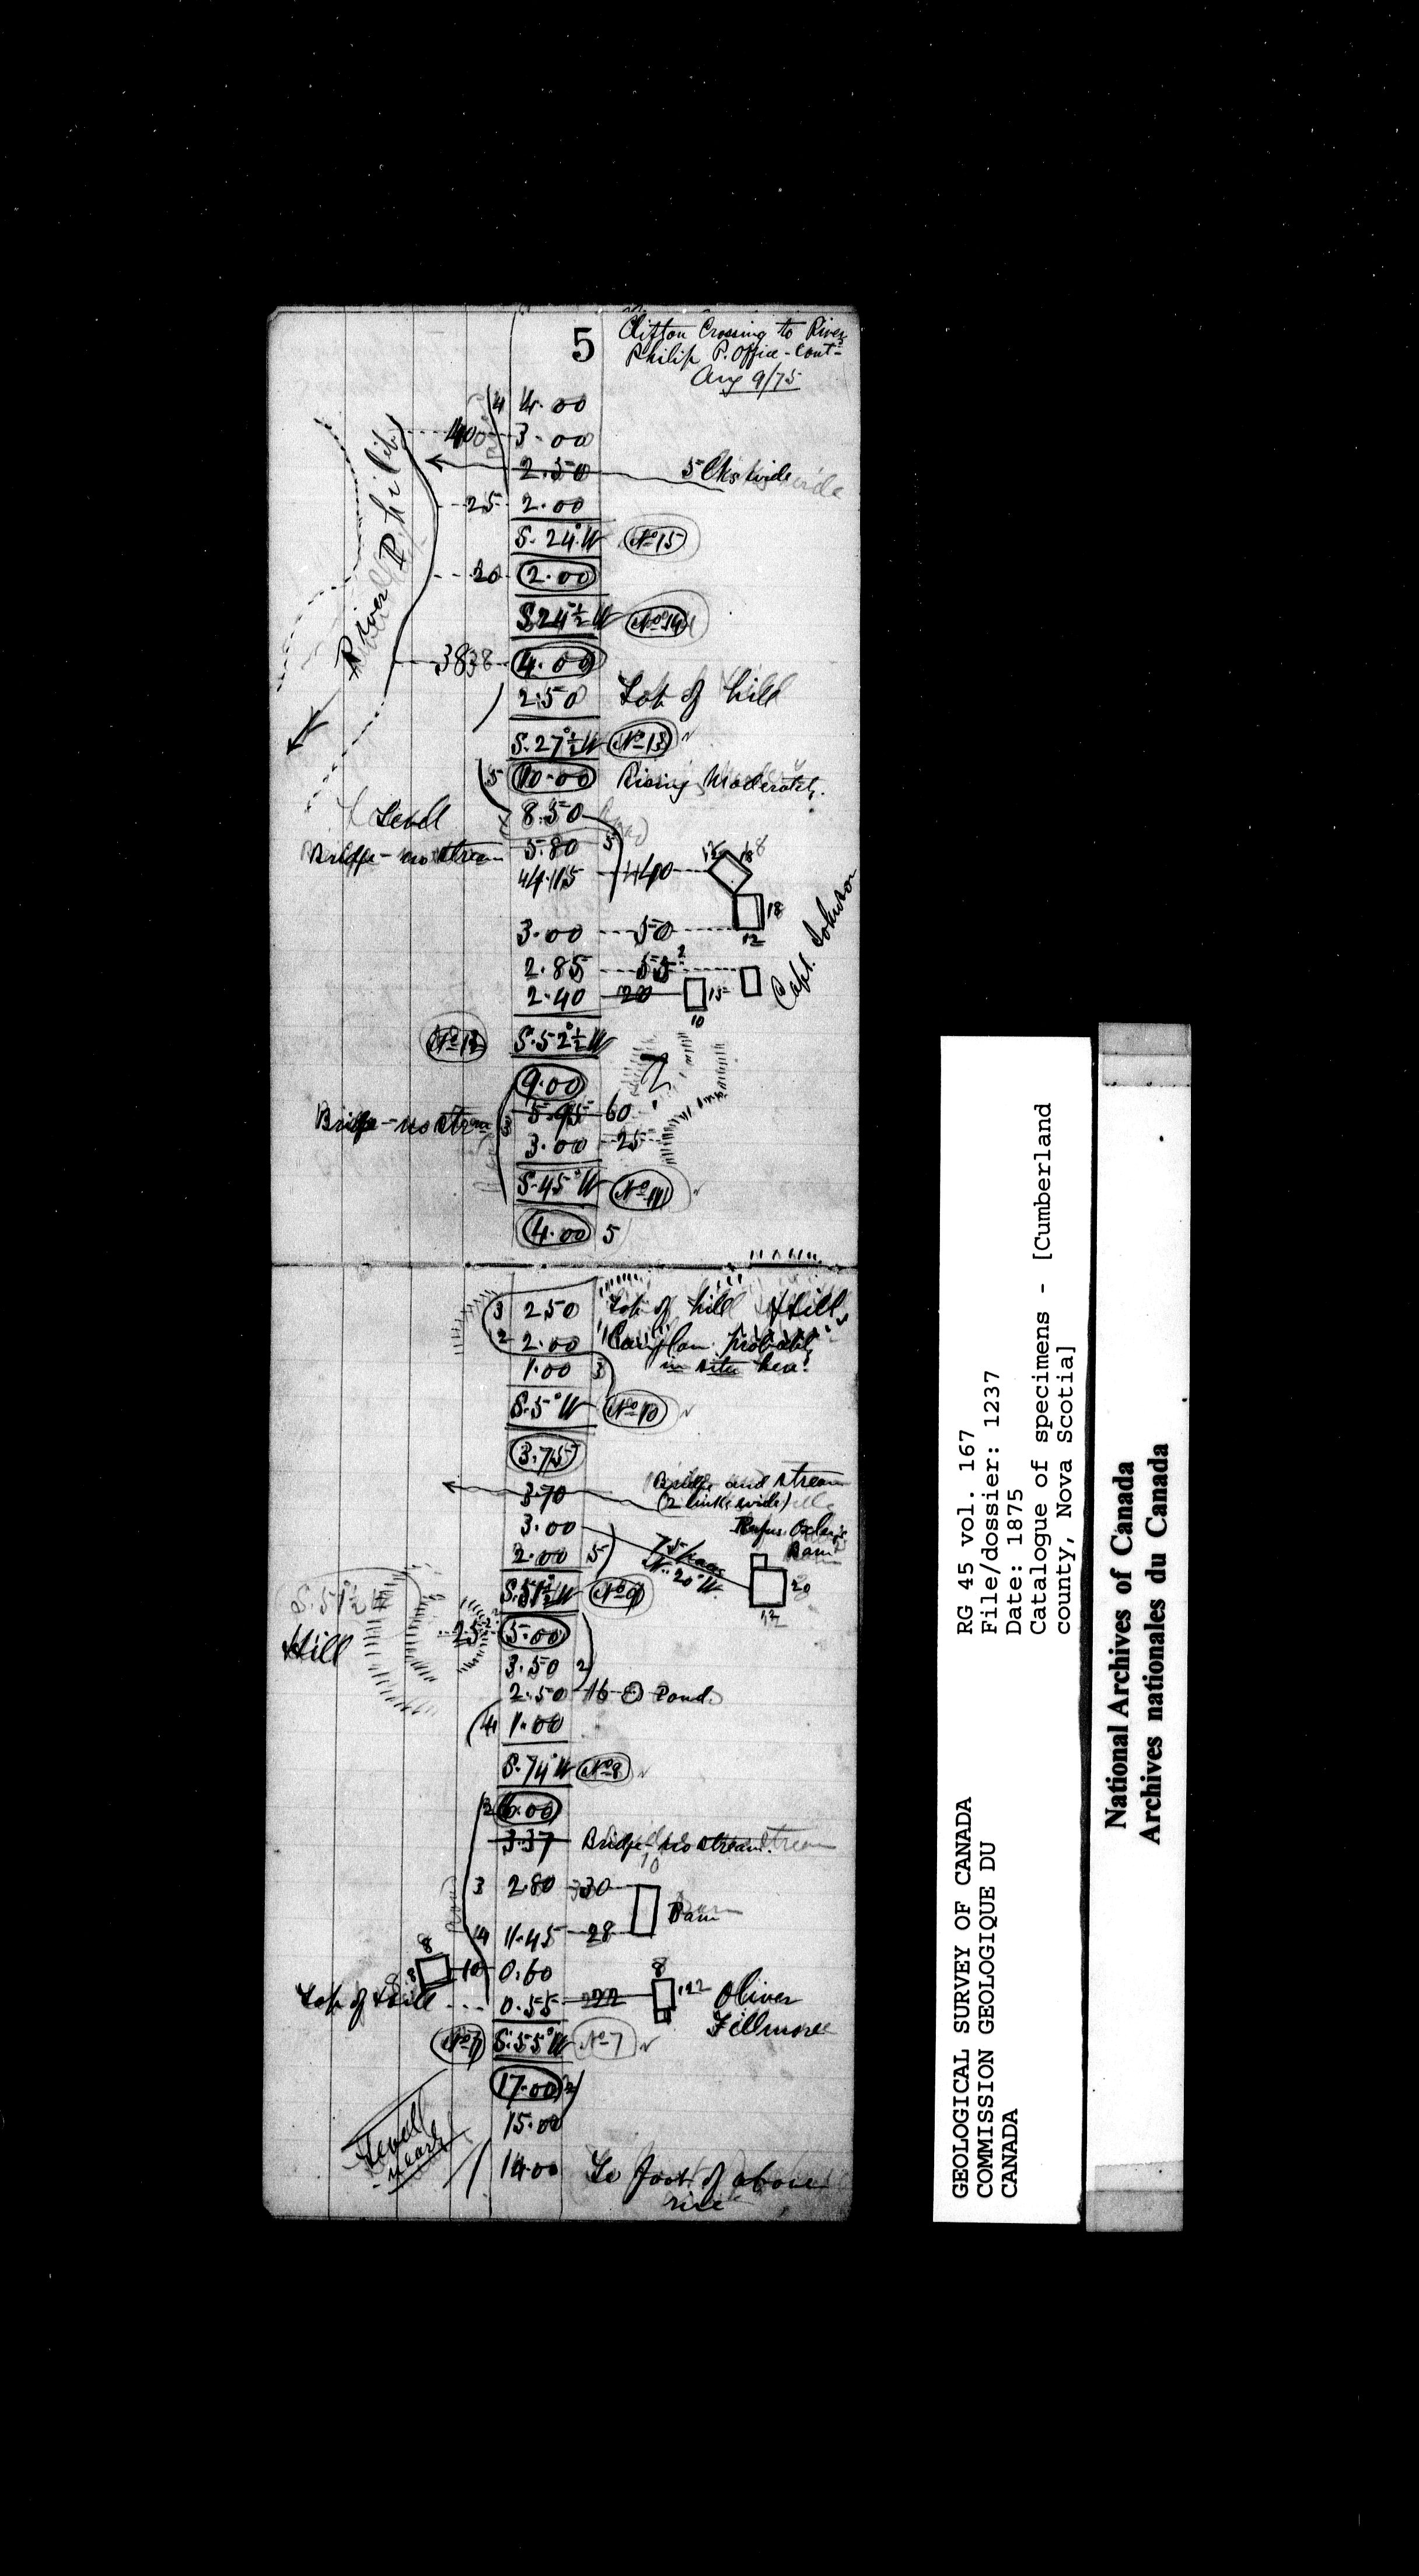 5
Clifton Crossing to River
Philip P. Office - Cont-
Aug 9/75
4 4.00
40 3.00
2.50 5 lks wide
25 2.00
S. 24° W No 15
20 2.00
S. 24 1/2° W No 14
38 4.00
River Philip
2.50 Top of hill
S. 27 1/2° W No 13
5 10.00 Rising Moderately.
Level 8.50
Bridge - no stream 5.80 5
4.15 40 12 18
3.00 50 18
12
2.85 55
2.40 20 15
10
Capt. Johnson
No 12 S. 52 1/2° W
9.00
Bridge - no stream 3 5.95 60
3.00 25
S. 45° W No 11
4.00 5
3 2.50 Top of hill Hill
2 2.00 probably
1.00 3 in situ here.
S. 5° W No 10
3.75
3.70 Bridge and stream
(2 links wide)
3.00 Rufus
2.00 5 Barn
75 paces
N. 20° W. 20
12
S. 51 1/2° W No 9
S. 51 1/2 W
Hill 25 5.00
3.50 2
2.50 16 Pond.
4 1.00
S. 74° W No 8
2 6.00
3.37 Bridge - no stream.
10
3 2.80 30
Barn
4 1.45 28
8
8 10 0.60 8
Top of hill 0.55 22 12 Oliver
Fillmore
No 7 S. 55° W No 7
17.00 2
15.00
Level
near
14.00 To foot of above
rise
GEOLOGICAL SURVEY OF CANADA
COMMISSION GEOLOGIQUE DU
CANADA
RG 45 vol. 167
File/dossier: 1237
Date: 1875
Catalogue of specimens - [Cumberland
county, Nova Scotia]
National Archives of Canada
Archives nationales du Canada